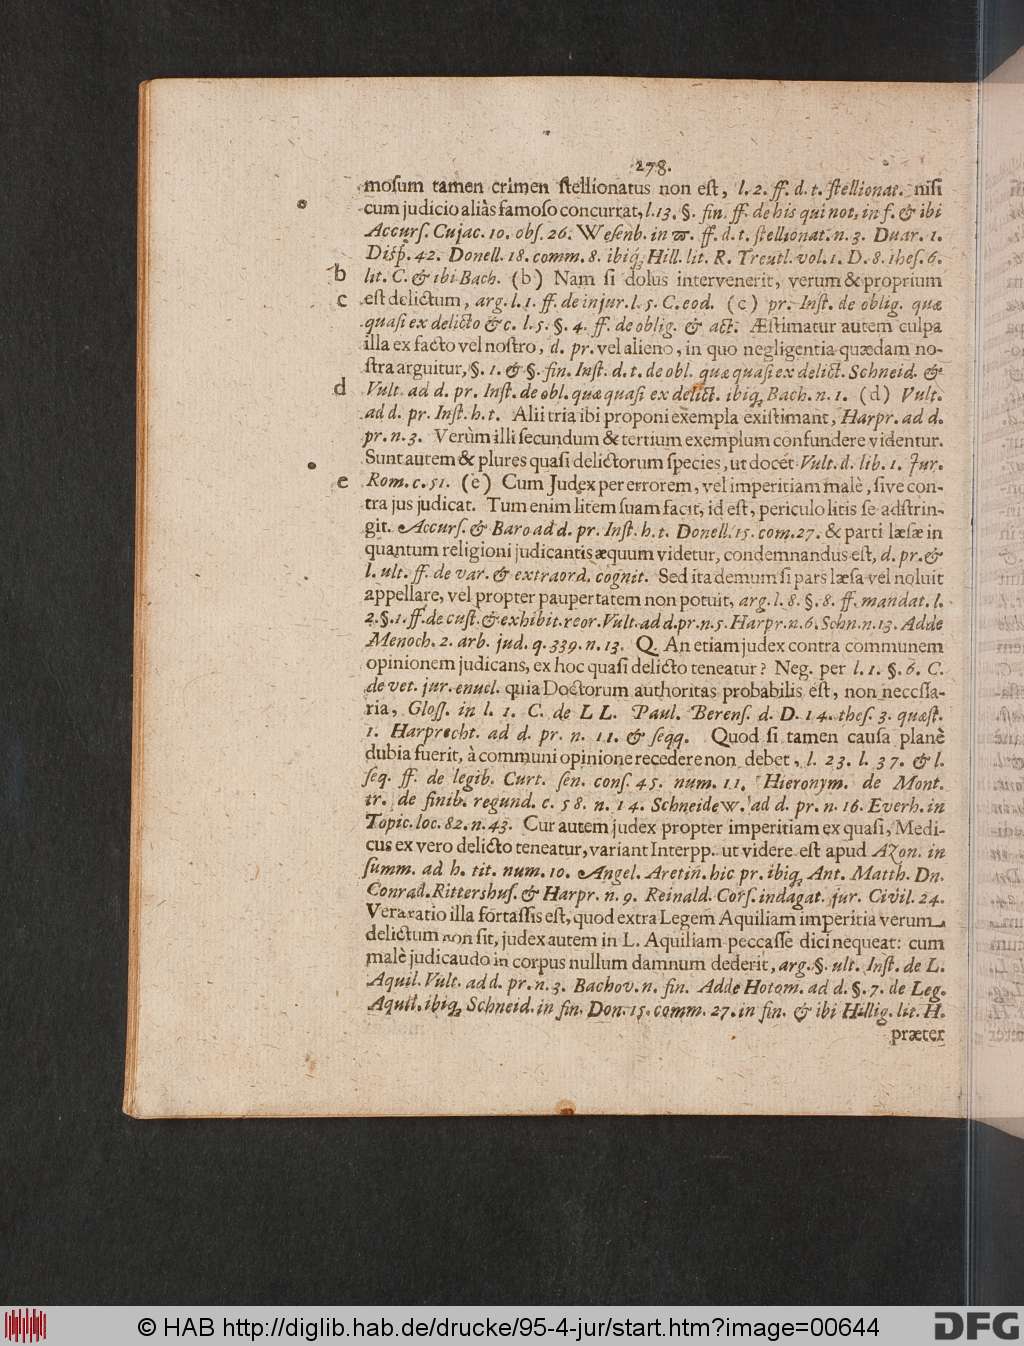 278.
mosum tamen crimen stellionatus non est, l. 2. ff. d. t. stellionat. nisi
cum judicio aliàs famoso concurrat, l. 13. §. fin. ff. de his qui not. in f. & ibi
Accurs. Cujac. 10. obs. 26. Wesenb. in π. ff. d. t. stellionat. n. 3. Duar. 1.
Disp. 42. Donell. 18. comm. 8. ibiq; Hill. lit. R. Treutl. vol. 1. D. 8. thes. 6.
b lit. C. & ibi Bach. (b) Nam si dolus intervenerit, verum & proprium
c est delictum, arg. l. 1. ff. de injur. l. 5. C. eod. (c) pr. Inst. de oblig. quæ
quasi ex delicto &c. l. 5. §. 4. ff. de oblig. & act. Æstimatur autem culpa
illa ex facto vel nostro, d. pr. vel alieno, in quo negligentia quædam no-
stra arguitur, §. 1. & §. fin. Inst. d. t. de obl. quæ quasi ex delict. Schneid. &
d Vult. ad d. pr. Inst. de obl. quæ quasi ex delict. ibiq; Bach. n. 1. (d) Vult.
ad d. pr. Inst. h. t. Alii tria ibi proponi exempla existimant, Harpr. ad d.
pr. n. 3. Verùm illi secundum & tertium exemplum confundere videntur.
Sunt autem & plures quasi delictorum species, ut docet Vult. d. lib. 1. Jur.
e Rom. c. 51. (e) Cum Judex per errorem, vel imperitiam malè, sive con-
tra jus judicat. Tum enim litem suam facit, id est, periculo litis se adstrin-
git. Accurs. & Baro ad d. pr. Inst. h. t. Donell. 15. com. 27. & parti læsæ in
quantum religioni judicantis æquum videtur, condemnandus est, d. pr. &
l. ult. ff. de var. & extraord. cognit. Sed ita demum si pars læsa vel noluit
appellare, vel propter paupertatem non potuit, arg. l. 8. §. 8. ff. mandat. l.
2. §. 1. ff. de cust. & exhibit. reor. Vult. ad d. pr. n. 5. Harpr. n. 6. Schn. n. 13. Adde
Menoch. 2. arb. jud. q. 339. n. 13. Q. An etiam judex contra communem
opinionem judicans, ex hoc quasi delicto teneatur? Neg. per l. 1. §. 6. C.
de vet. jur. enucl. quia Doctorum authoritas probabilis est, non necessa-
ria, Gloss. in l. 1. C. de LL. Paul. Berens. d. D. 14. thes. 3. quæst.
1. Harprecht. ad d. pr. n. 11. & seqq. Quod si tamen causa planè
dubia fuerit, à communi opinione recedere non debet, l. 23. l. 37. & l.
seq. ff. de legib. Curt. sen. cons. 45. num. 11. Hieronym. de Mont.
tr. de finib. regund. c. 58. n. 14. Schneidew. ad d. pr. n. 16. Everh. in
Topic. loc. 82. n. 43. Cur autem judex propter imperitiam ex quasi, Medi-
cus ex vero delicto teneatur, variant Interpp. ut videre est apud Azon. in
summ. ad h. tit. num. 10. Angel. Aretin. hic pr. ibiq; Ant. Matth. Dn.
Conrad. Rittershus. & Harpr. n. 9. Reinald. Cors. indagat. jur. Civil. 24.
Vera ratio illa fortassis est, quod extra Legem Aquiliam imperitia verum
delictum non sit, judex autem in L. Aquiliam peccasse dici nequeat: cum
malè judicaudo in corpus nullum damnum dederit, arg. §. ult. Inst. de L.
Aquil. Vult. ad d. pr. n. 3. Bachov. n. fin. Adde Hotom. ad d. §. 7. de Leg.
Aquil. ibiq; Schneid. in fin. Don. 15. comm. 27. in fin. & ibi Hillig. lit. H.
præter
© HAB http://diglib.hab.de/drucke/95-4-jur/start.htm?image=00644
DFG